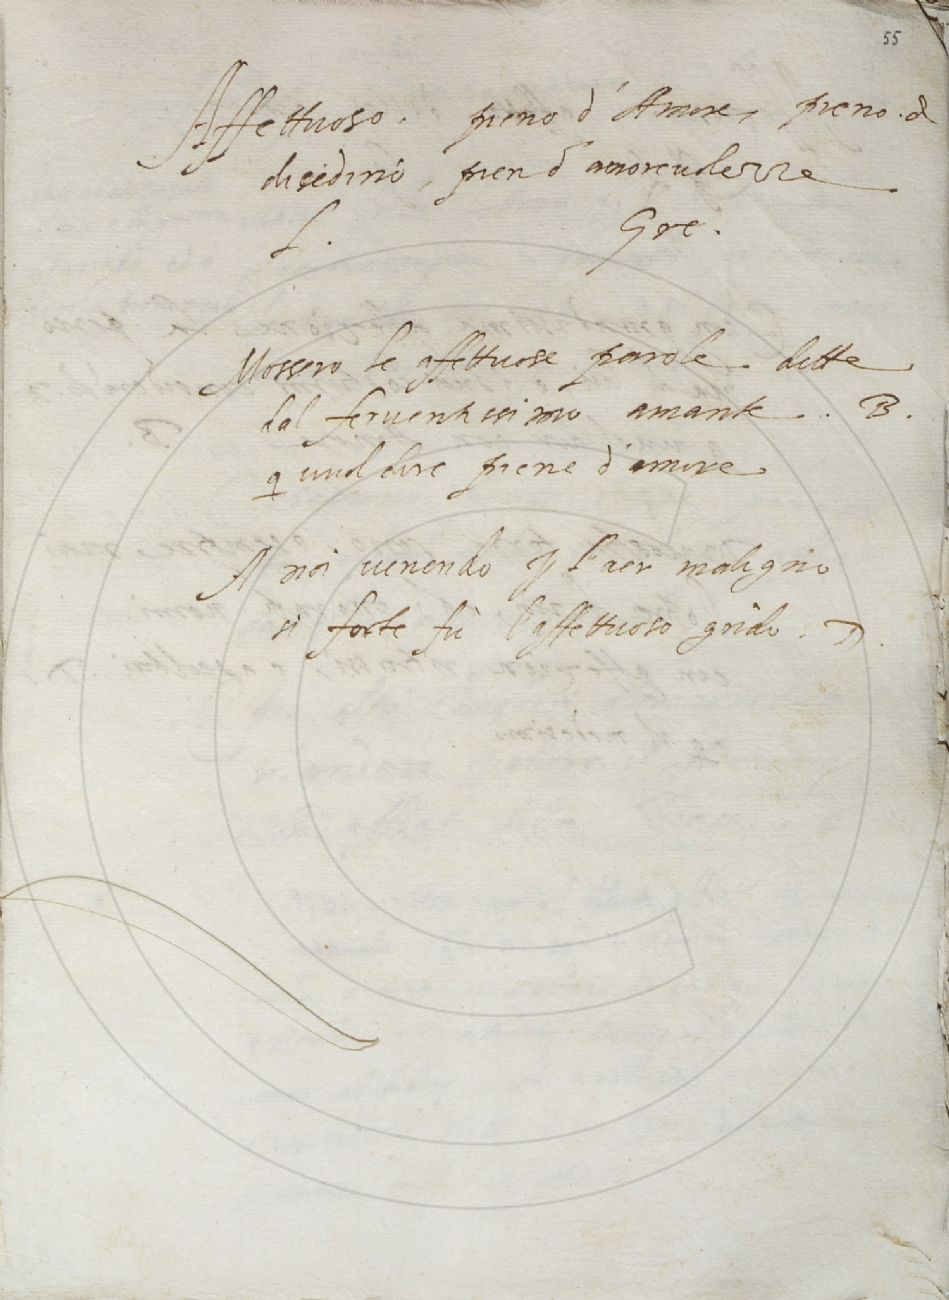 55
Affettuoso. pieno d'Amore, pieno. d
disiderio, pien d'amoreuolezze
L. Gre.
Mossero le affettuose parole dette
dal feruentissimo amante. B.
q uuol dire piene d'amore
A noi uenendo p l'aer maligno
si forte fù l'affettuoso grido. D.